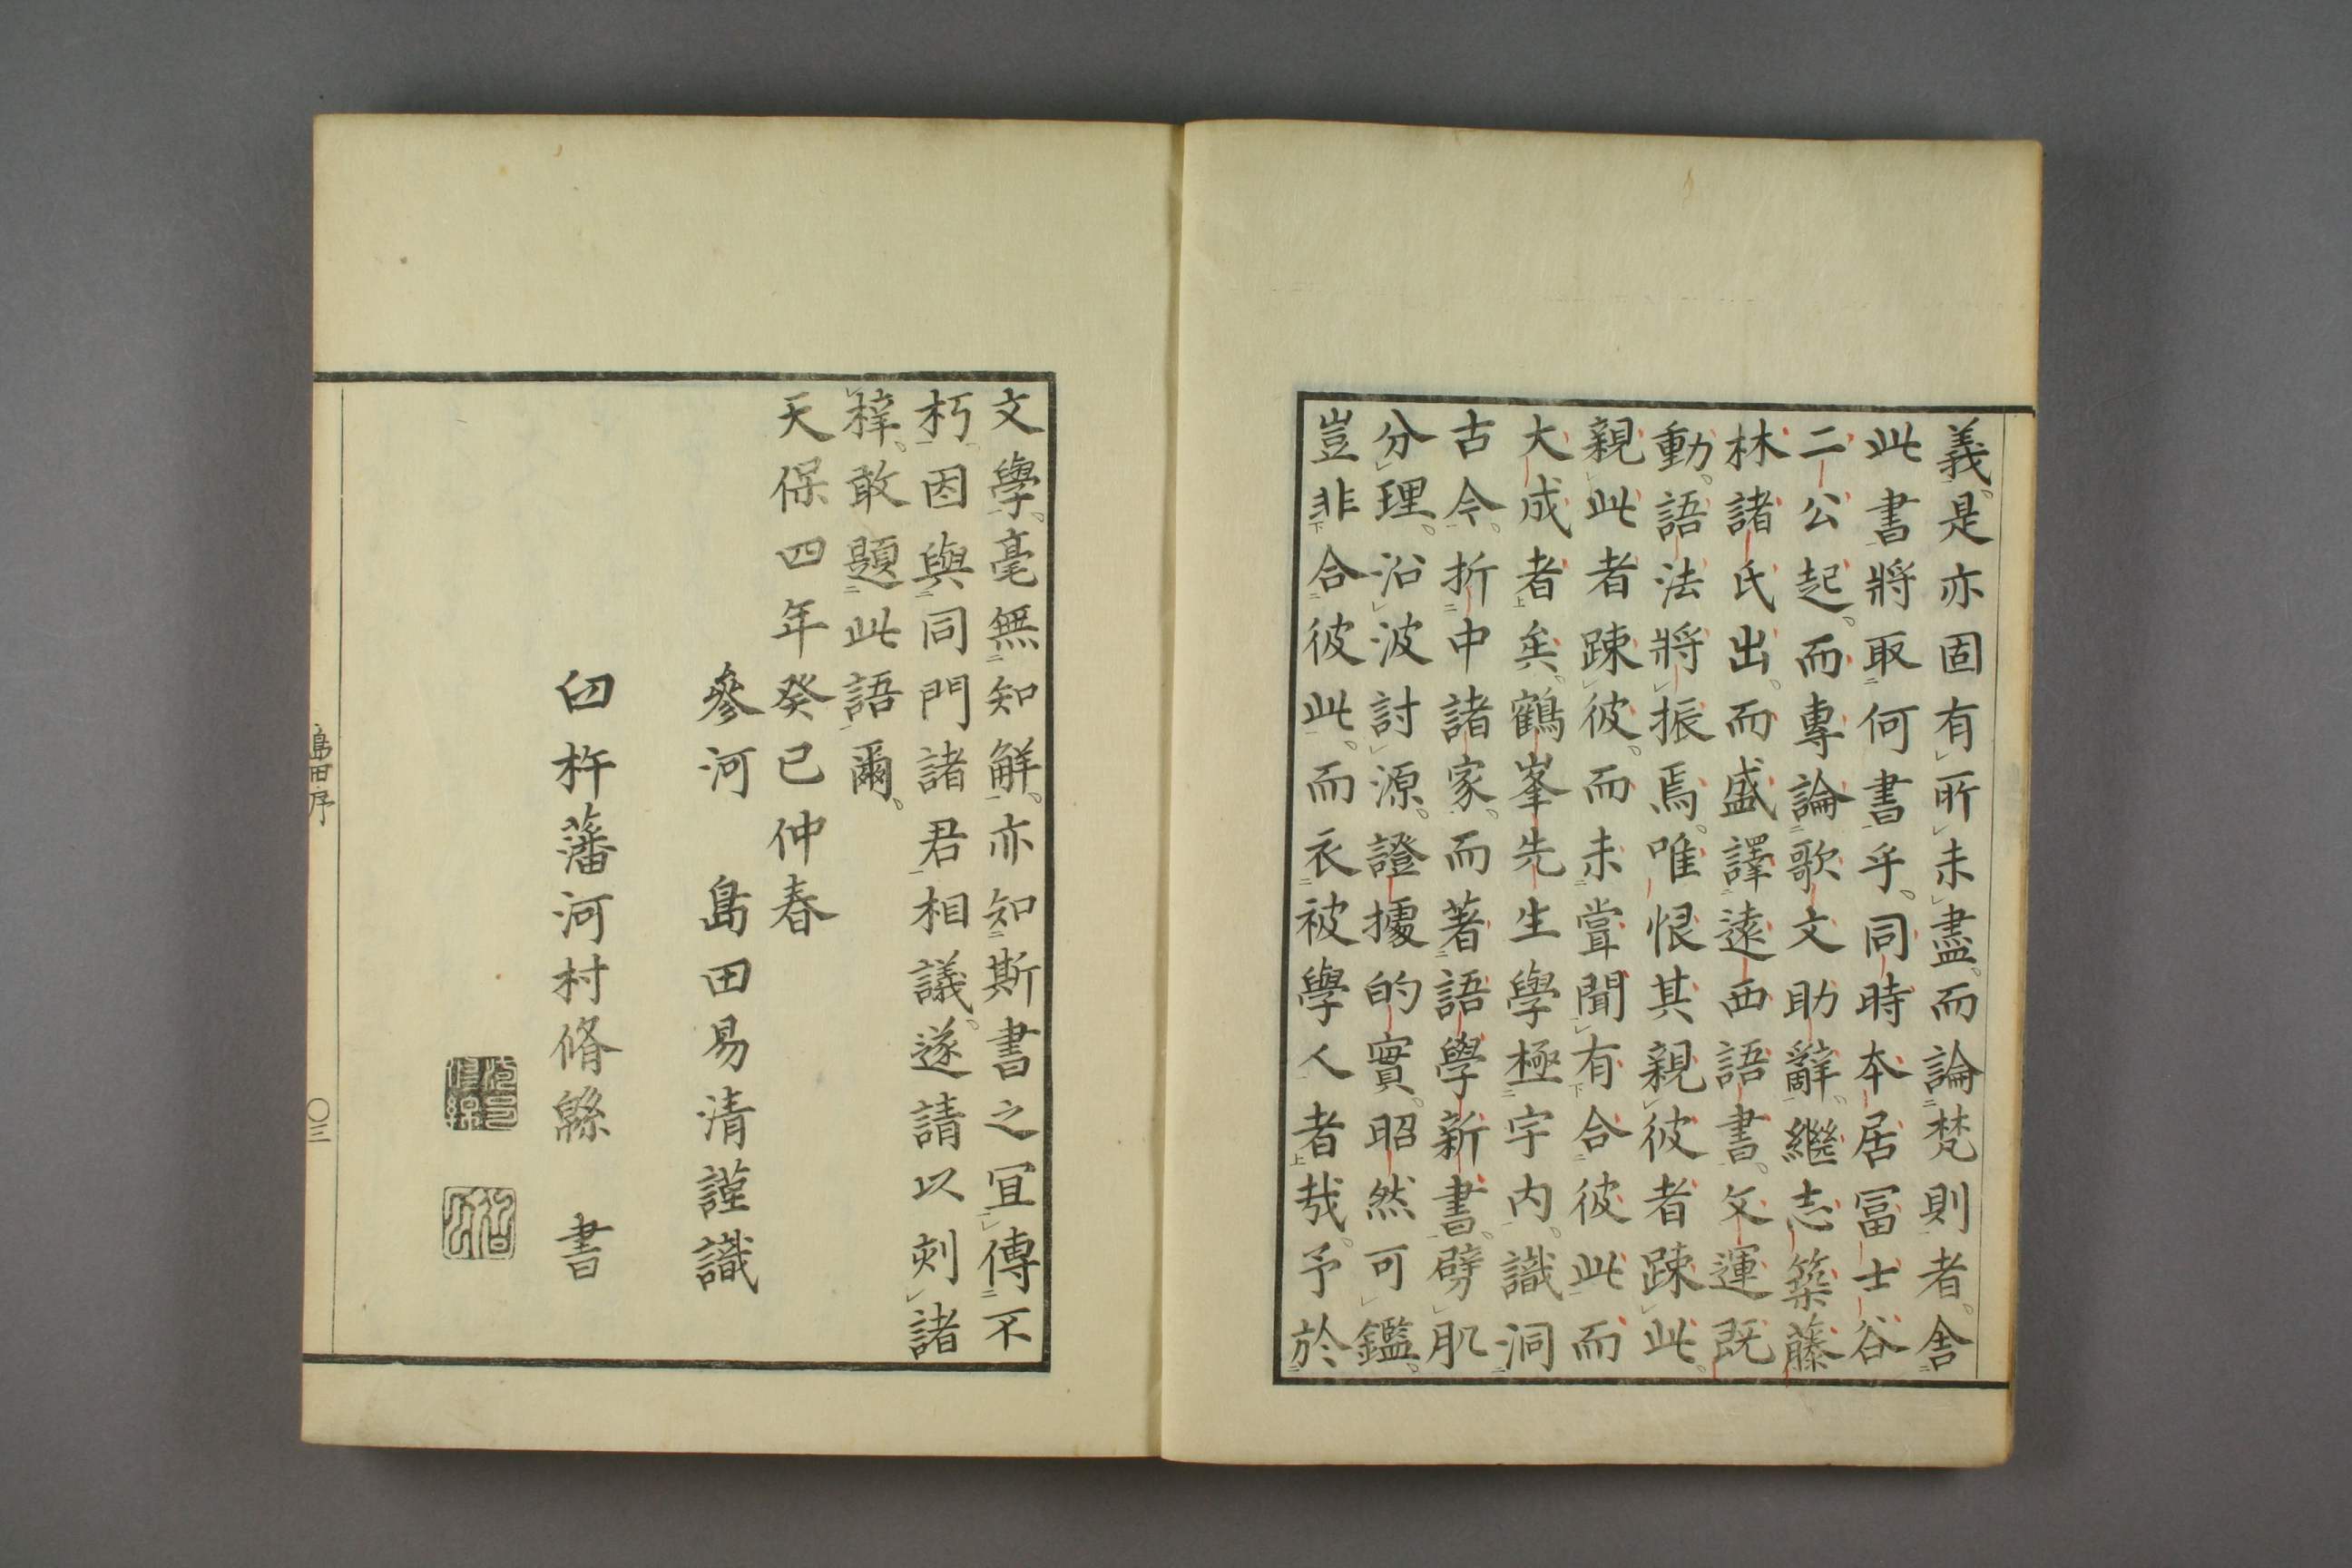 義。是亦固有所未盡。而論梵則者。舎
此書將取何書乎。同時本居冨士谷
二公起。而專論歌文助辭。繼志築藤
林諸氏出。而盛譯遠西語書。文運既
動。語法將振焉。唯恨其親彼者踈此。
親此者踈彼。而未甞聞有合彼此而
大成者矣。鶴峯先生學極宇内。識洞
古今。折中諸家。而著語學新書。劈肌
分理。沿波討源。證據的實。昭然可鑑。
豈非合彼此。而衣被學人者哉。予於
文學。毫無知解。亦知斯書之冝傳不
朽。因與同門諸君相議。遂請以刻諸
梓。敢題此語爾。
天保四年癸巳仲春
參河 島田易清謹識
臼杵藩河村脩緜 書
島田序
〇三